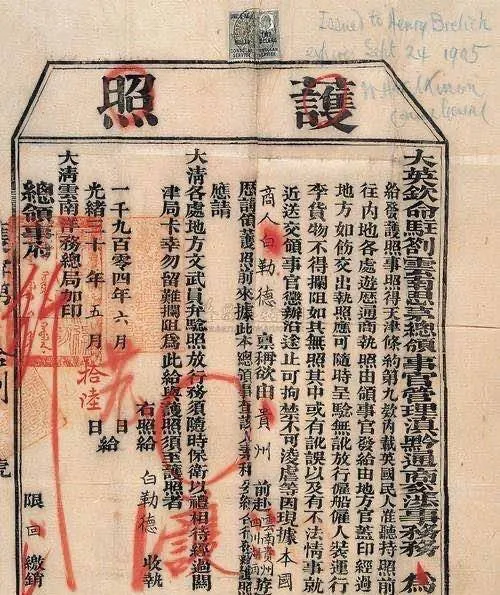 Issued to Henry Brelich
expires Sept 24 1905
Consul General
CONSULAR SERVICE
護照
大英欽命駐劄雲南總領事官管理滇黔通商交涉事務 為
給發護照事照得天津條約第九欵內載英國民人准聽持照前
往內地各處遊歷通商執照由領事官發給由地方官蓋印經過
地方如飭交出執照應可隨時呈驗無訛放行僱船僱人裝運行
李貨物不得攔阻如其無照其中或有訛誤以及有不法情事就
近送交領事官懲辦沿途止可拘禁不可凌虐等因現據本國
商人白勒德 稟稱欲由貴州 前赴雲南貴州 遊
歷請領護照前來據此本總領事查該人
應請
大清各處地方文武員弁驗照放行務須隨時保衛以禮相待經過關
津局卡幸勿留難攔阻為此給與護照須至護照者
右照給 白勒德 收執
一千九百零四年六月 日給
光緒三十年五月拾陸日
大清雲南洋務總局加印
總領事府
限 回繳銷